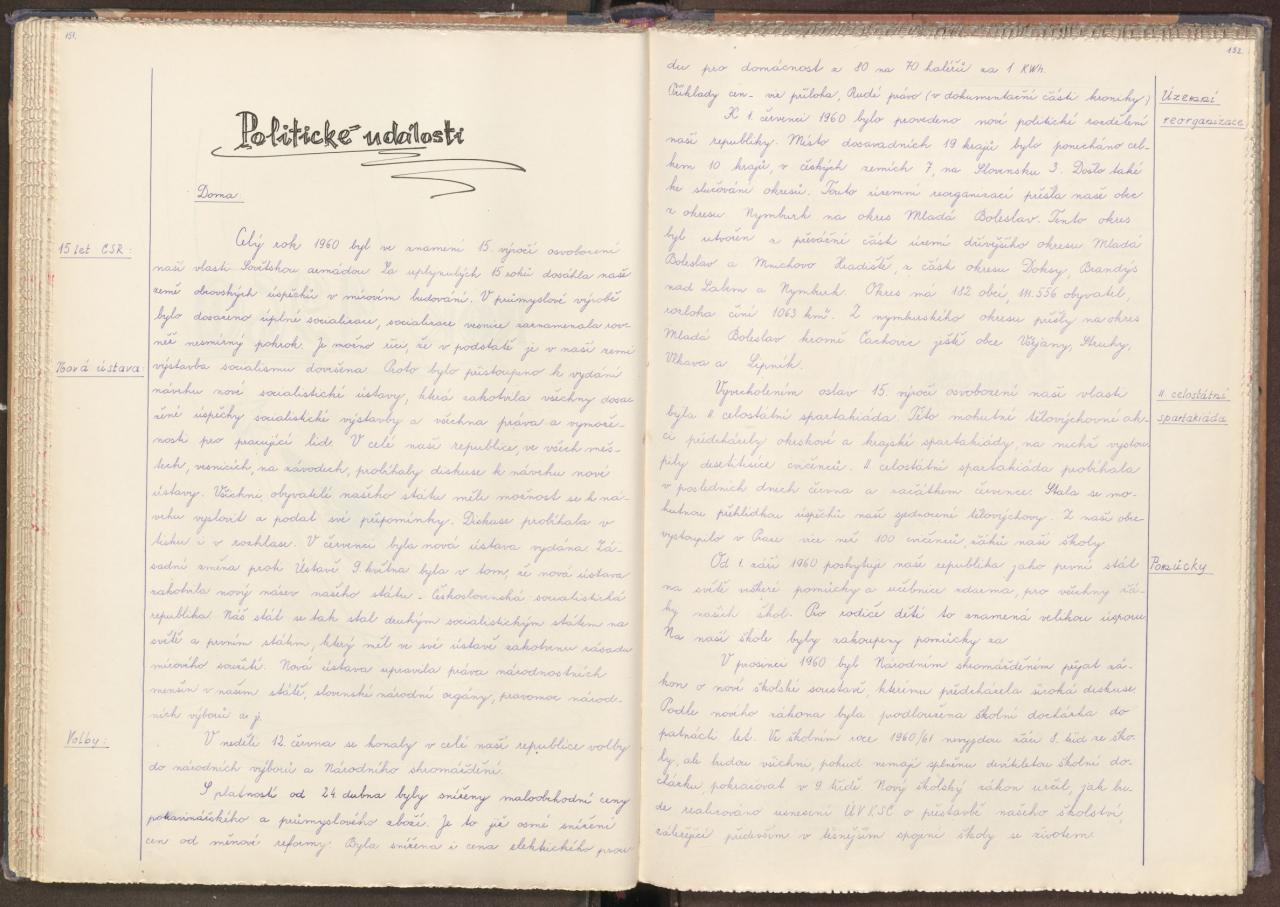 151.
Politické události
Doma.
15 let ČSR:
Celý rok 1960 byl ve znamení 15. výročí osvobození
naší vlasti Sovětskou armádou. Za uplynulých 15 roků dosáhla naše
země obrovských úspěchů v mírovém budování. V průmyslové výrobě
bylo dosaženo úplné socialisace, socialisace vesnice zaznamenala rov-
něž nesmírný pokrok. Je možno říci, že v podstatě je v naší zemi
Nová ústava:
výstavba socialismu dovršena. Proto bylo přistoupeno k vydání
návrhu nové socialistické ústavy, která zakotvila všechny dosa-
žené úspěchy socialistické výstavby a všechna práva a vymože-
nosti pro pracující lid. V celé naší republice, ve všech měs-
tech, vesnicích, na závodech, probíhaly diskuse k návrhu nové
ústavy. Všichni obyvatelé našeho státu měli možnost se k ná-
vrhu vyslovit a podat své připomínky. Diskuse probíhala v
tisku i v rozhlase. V červenci byla nová ústava vydána. Zá-
sadní změna proti Ústavě 9. května byla v tom, že nová ústava
zakotvila nový název našeho státu - Československá socialistická
republika. Náš stát se tak stal druhým socialistickým státem na
světě a prvním státem, který měl ve své ústavě zakotvenu zásadu
mírového soužití. Nová ústava upravila práva národnostních
menšin v našem státě, slovenské národní orgány, pravomoc národ-
ních výborů a j.
Volby:
V neděli 12. června se konaly v celé naší republice volby
do národních výborů a Národního shromáždění.
S platností od 24. dubna byly sníženy maloobchodní ceny
potravinářského a průmyslového zboží. Je to již osmé snížení
cen od měnové reformy. Byla snížena i cena elektrického prou-
152.
du pro domácnost z 80 na 70 haléřů za 1 KWh.
Příklady cen - viz příloha, Rudé právo (v dokumentační části kroniky)
Územní
reorganizace
K 1. červenci 1960 bylo provedeno nové politické rozdělení
naší republiky. Místo dosavadních 19 krajů bylo ponecháno cel-
kem 10 krajů, v českých zemích 7, na Slovensku 3. Došlo také
ke slučování okresů. Touto územní reorganizací přešla naše obec
z okresu Nymburk na okres Mladá Boleslav. Tento okres
byl utvořen z převážné části území dřívějšího okresu Mladá
Boleslav a Mnichovo Hradiště, z části okresu Doksy, Brandýs
nad Labem a Nymburk. Okres má 182 obcí, 111.556 obyvatel,
rozloha činí 1063 km². Z nymburského okresu přešly na okres
Mladá Boleslav kromě Čachovic ještě obce Všejany, Struhy,
Vlkava a Lipník.
II. celostátní
spartakiáda
Vyvrcholením oslav 15. výročí osvobození naší vlasti
byla II. celostátní spartakiáda. Této mohutné tělovýchovné ak-
ci předcházely okrskové a krajské spartakiády, na nichž vystou-
pily desetitisíce cvičenců. II. celostátní spartakiáda probíhala
v posledních dnech června a začátkem července. Stala se mo-
hutnou přehlídkou úspěchů naší sjednocené tělovýchovy. Z naší obce
vystoupilo v Praze více než 100 cvičenců, žáků naší školy.
Pomůcky
Od 1. září 1960 poskytuje naše republika jako první stát
na světě veškeré pomůcky a učebnice zdarma, pro všechny žá-
ky našich škol. Pro rodiče dětí to znamená velikou úsporu.
Na naší škole byly zakoupeny pomůcky za
V prosinci 1960 byl Národním shromážděním přijat zá-
kon o nové školské soustavě, kterému předcházela široká diskuse.
Podle nového zákona byla prodloužena školní docházka do
patnácti let. Ve školním roce 1960/61 nevyjdou žáci 8. tříd ze ško-
ly, ale budou všichni, pokud nemají splněnu devítiletou školní do-
cházku, pokračovat v 9. třídě. Nový školský zákon určil, jak bu-
de realizováno usnesení ÚV KSČ o přestavbě našeho školství,
záležející především v těsnějším spojení školy se životem.